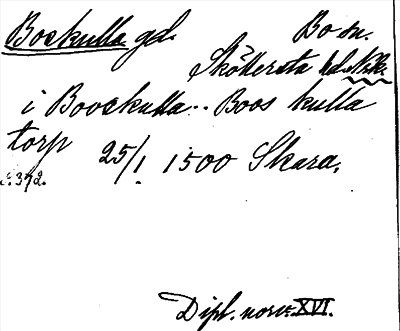 Boskulla gd. Bo sn.
Sköllersta hd. Nrk.
i Boockulla.. Boos kulla
torp 25/1. 1500 Skara.
s. 372.
Dipl. norv. XVI.